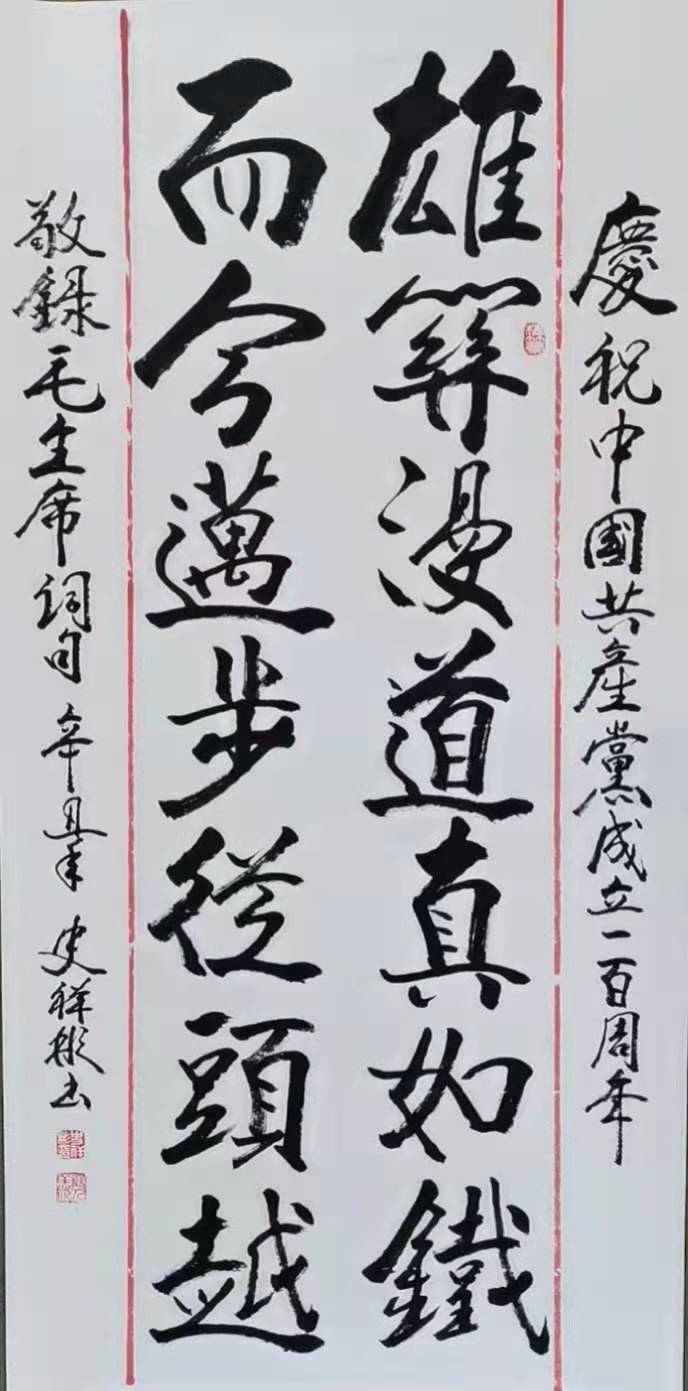 慶祝中國共產黨成立一百周年
雄關漫道真如鐵
而今邁步從頭越
敬録毛主席詞句 辛丑年 史祥彬书